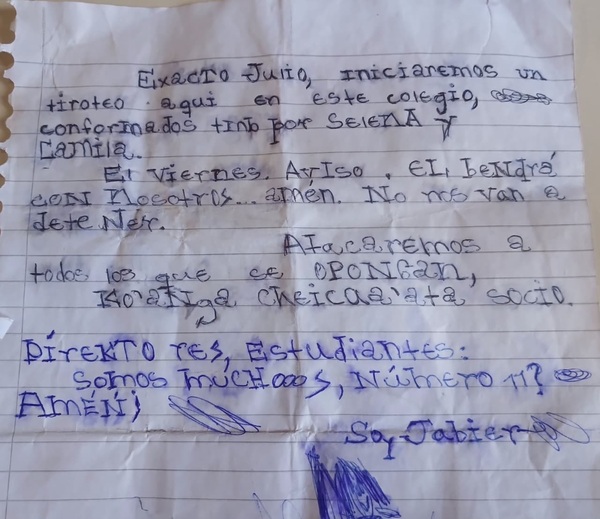 Exacto Julio, iniciaremos un
tiroteo aqui en este colegio,
conformados tinto por SELENA y
Camila.
El viernes. Aviso. El bendrá
con nosotros... amén. No nos van a
deteNer.
Atacaremos a
todos los que se OPONGAN,
socio.
DíreKTO res, Estudiantes:
Somos múcHooos, Número 11?
AMÉN;
Soy Jabier